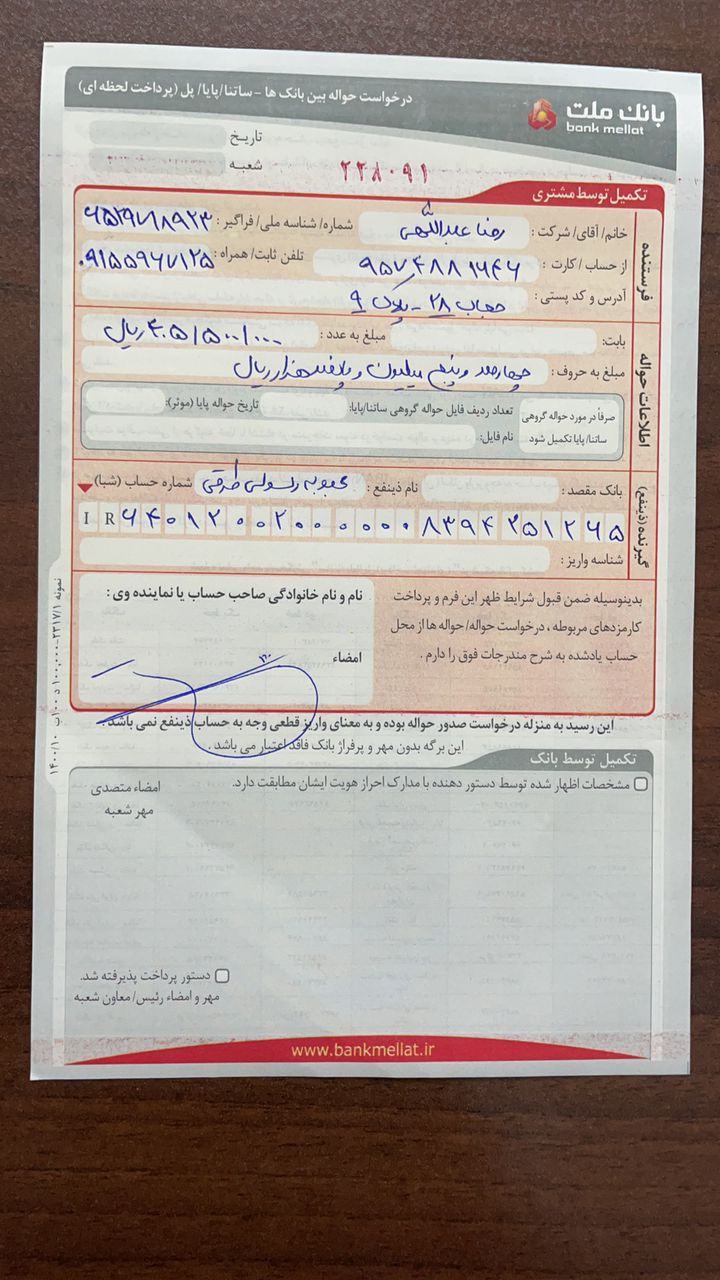 درخواست حواله بین بانک ها - ساتنا/پایا/ پل (پرداخت لحظه ای)
بانک ملت
bank mellat
تاریخ
شعبه
۲۲۸۰۹۱
تکمیل توسط مشتری
فرستنده
خانم/ آقای/ شرکت : رضا عبداللهی شماره/ شناسه ملی/ فراگیر :
از حساب / کارت : تلفن ثابت/ همراه : ۰۹۱۵۵۹۶۷۱۲۵
آدرس و کد پستی : حجاب ۲۸ - پلاک ۹
اطلاعات حواله
بابت: مبلغ به عدد : ۴۰۵/۵۰۰/۰۰۰ ریال
مبلغ به حروف : چهارصد و پنج میلیون و پانصد هزار ریال
صرفاً در مورد حواله گروهی ساتنا/ پایا تکمیل شود
تعداد ردیف فایل حواله گروهی ساتنا/پایا: تاریخ حواله پایا (موثر):
نام فایل:
گیرنده (ذینفع)
بانک مقصد : نام ذینفع : محبوبه رسولی طرقی شماره حساب (شبا)
IR ۶۴۰۱۲۰۰۲۰۰۰۰۰۰۸۳۹۴۲۵۱۲۶۵
شناسه واریز :
بدینوسیله ضمن قبول شرایط ظهر این فرم و پرداخت
کارمزدهای مربوطه ، درخواست حواله/ حواله ها از محل
حساب یادشده به شرح مندرجات فوق را دارم .
نام و نام خانوادگی صاحب حساب یا نماینده وی :
امضاء
این رسید به منزله درخواست صدور حواله بوده و به معنای واریز قطعی وجه به حساب ذینفع نمی باشد .
این برگه بدون مهر و پرفراژ بانک فاقد اعتبار می باشد .
تکمیل توسط بانک
مشخصات اظهار شده توسط دستور دهنده با مدارک احراز هویت ایشان مطابقت دارد.
امضاء متصدی
مهر شعبه
دستور پرداخت پذیرفته شد.
مهر و امضاء رئیس/ معاون شعبه
www.bankmellat.ir